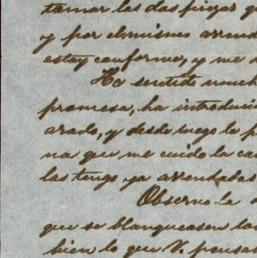 tomar las dos piezas q
y por el mismo arrend
estoy conforme, y me d
He sentido much
promesa, ha introduci
arado, y desde luego le p
na que me cuide la ca
las tengo ya arrendadas
Observo la
que se blanqueasen las
bien lo que V. pensa